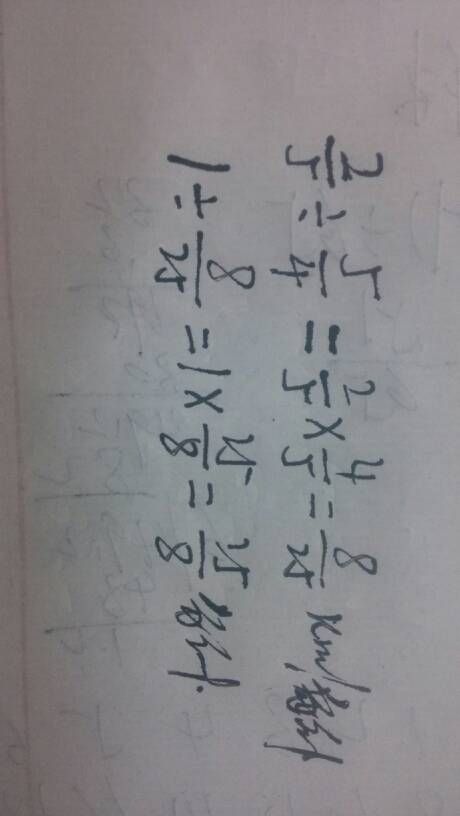 2/5 ÷ 5/4 = 2/5 × 4/5 = 8/25 km/
1 ÷ 8/25 = 1 × 25/8 = 25/8